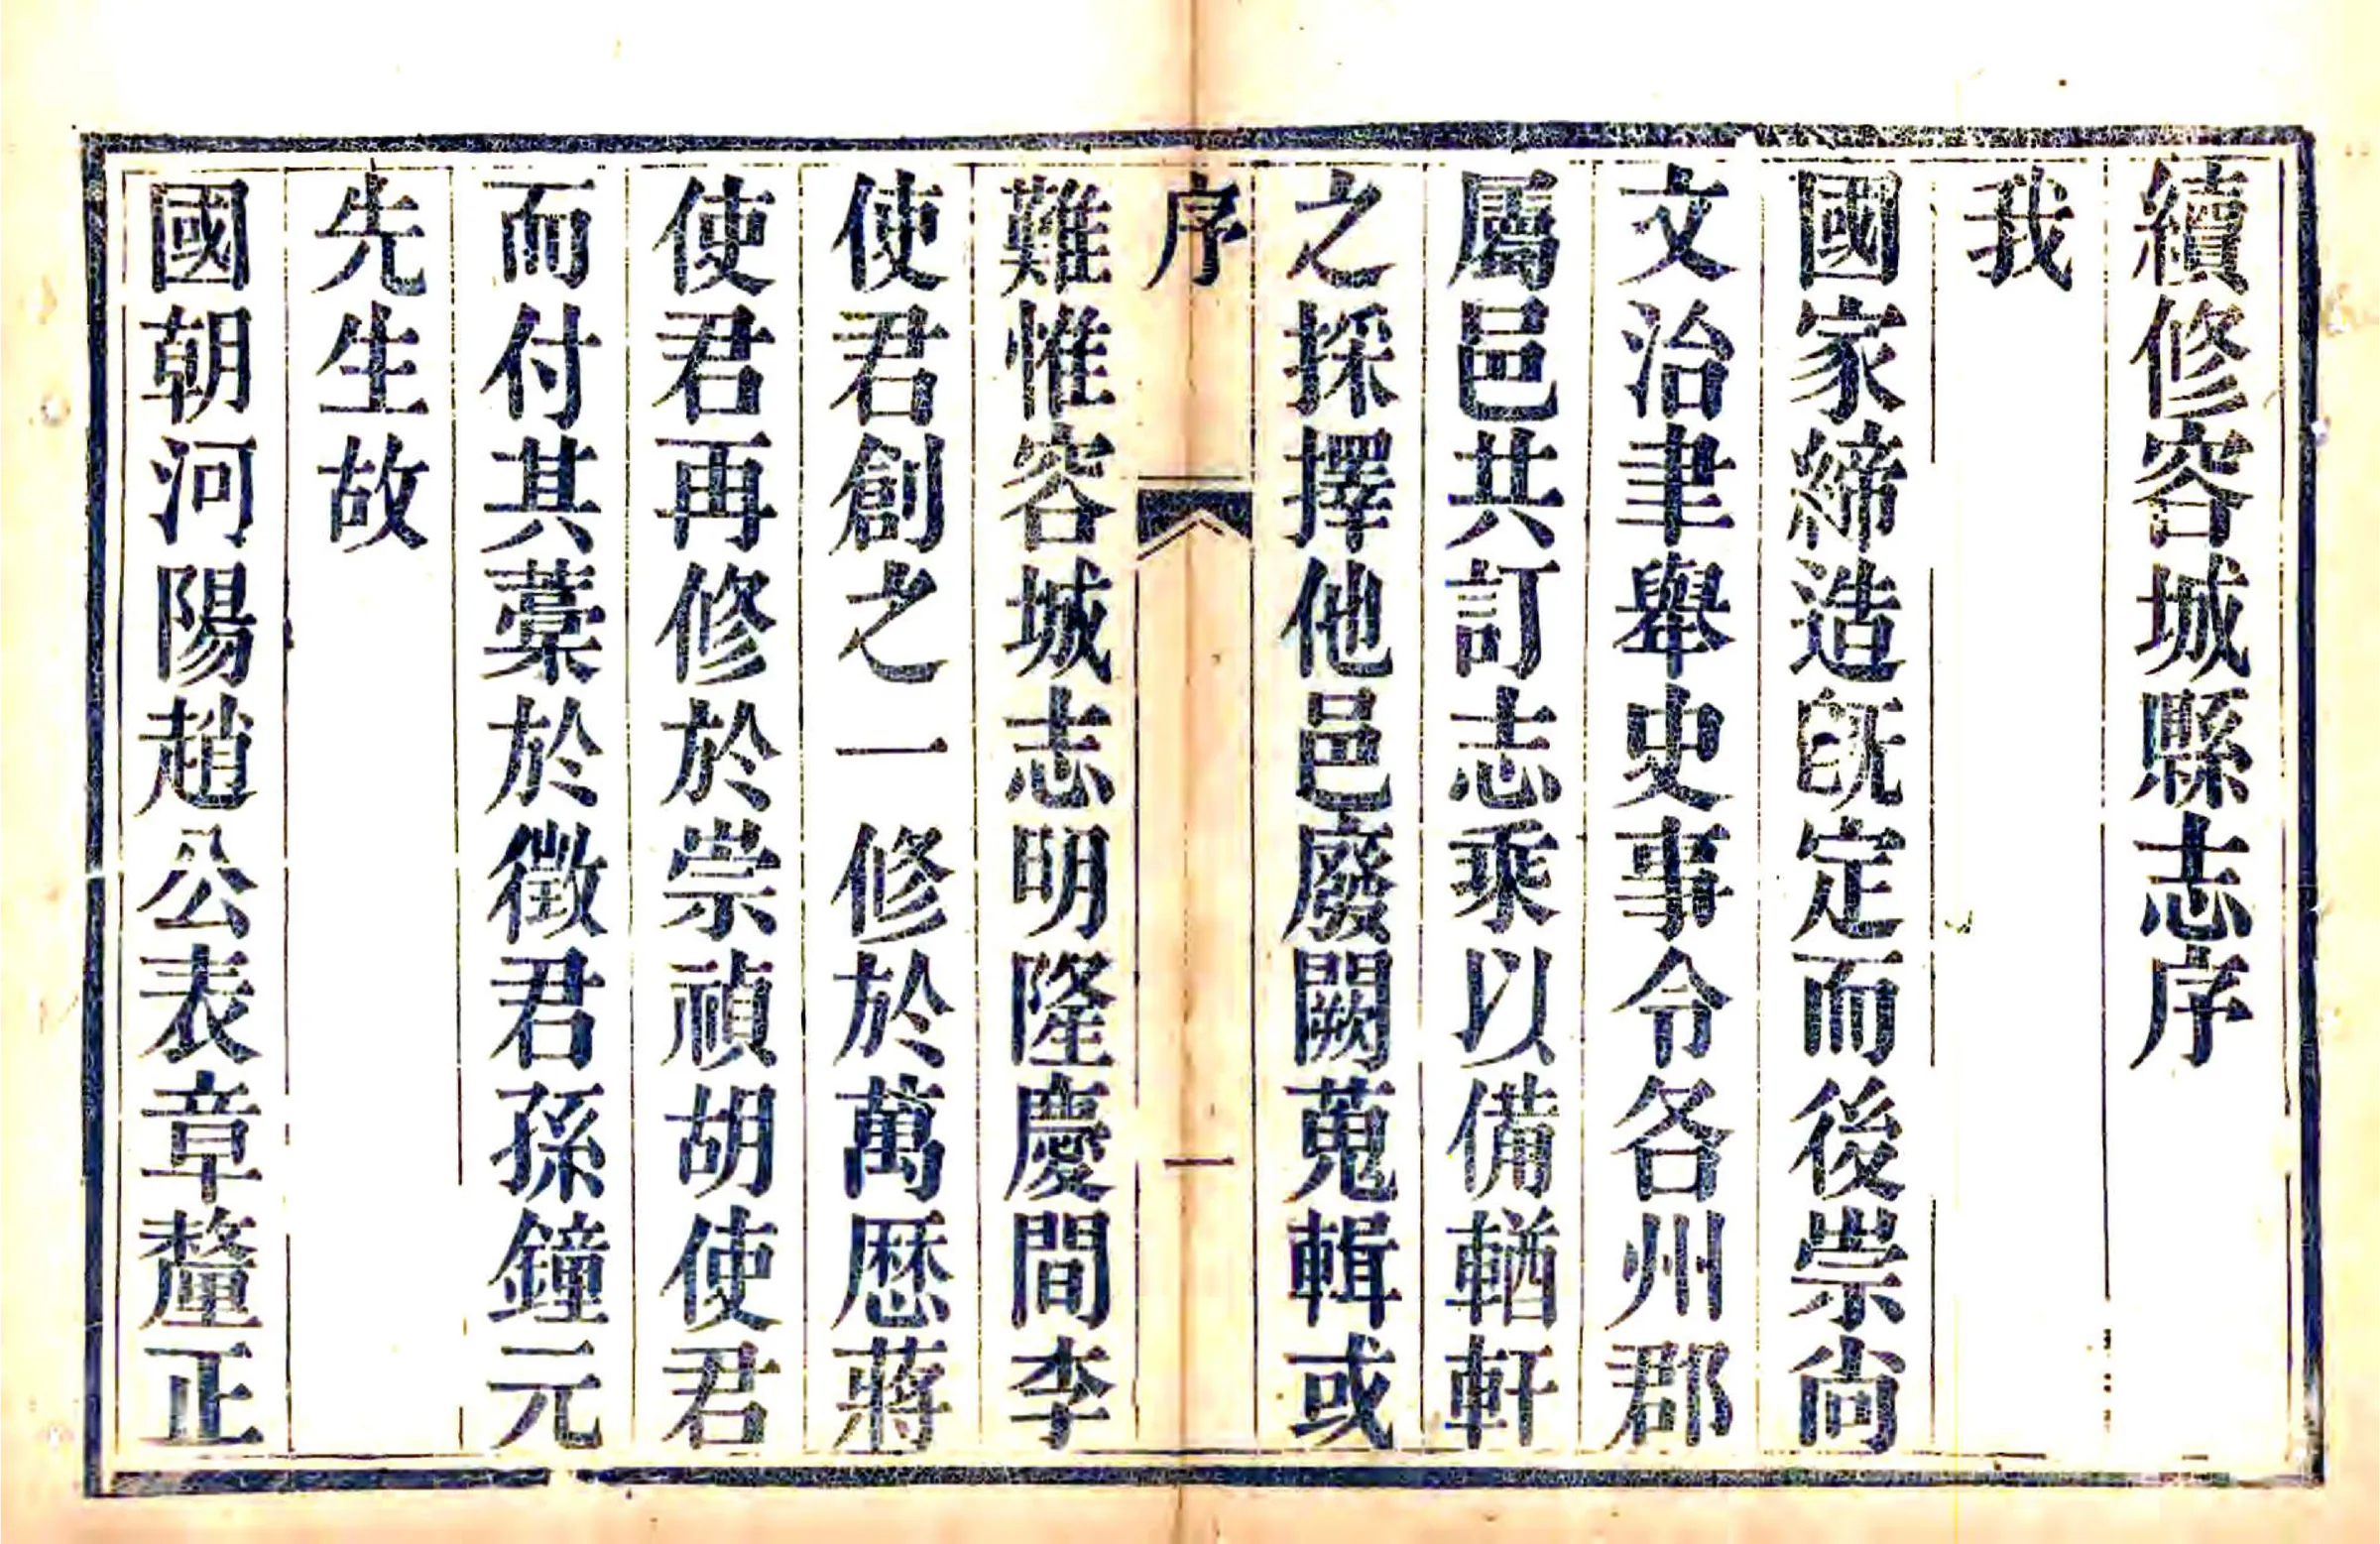 續修容城縣志序
我
國家締造旣定而後崇尙
文治聿舉史事令各州郡
屬邑共訂志乘以備輶軒
之採擇他邑廢闕蒐輯或
序
一
難惟容城志明隆慶間李
使君創之一修於萬厯蔣
使君再修於崇禎胡使君
而付其藁於徵君孫鐘元
先生故
國朝河陽趙公表章釐正